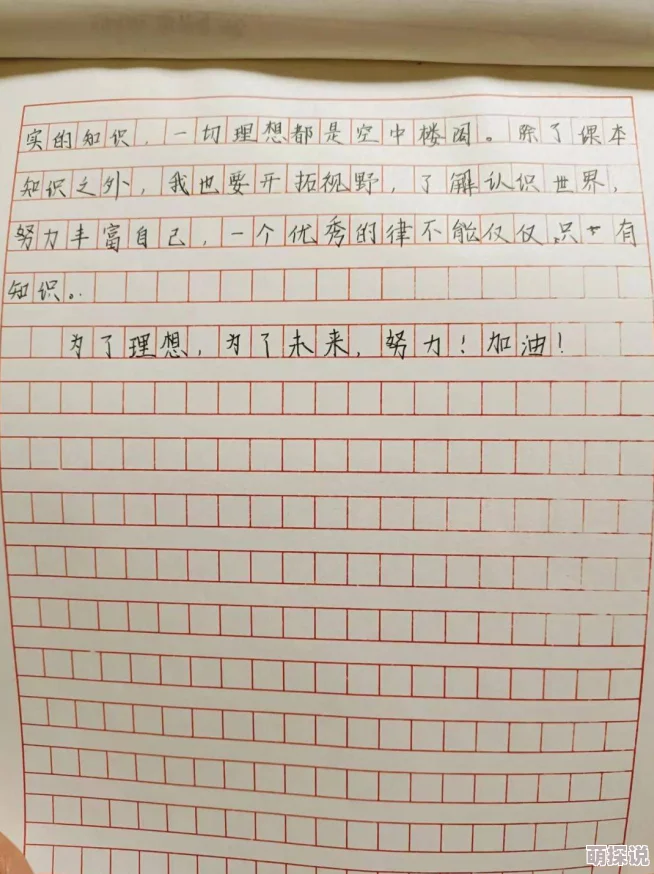 实的知识，一切理想都是空中楼阁。除了课本
知识之外，我也要开拓视野，了解认识世界，
努力丰富自己，一个优秀的律不能仅仅只有
知识。
为了理想，为了未来，努力！加油！
萌探说